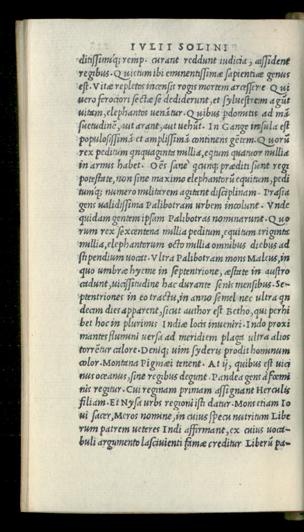 IVLII SOLINI
ditissimúq; remp. curant reddunt iudicia, assident
regibus. Quietum ibi eminentissimæ sapientiæ genus
est. Vitæ repletos incensis rogis mortem arcessere. Qui
uero ferociori sectæ se dediderunt, et syluestrem agũt
uitam, elephantos uenãtur. Quibus pdomitis ad mã
suetudinẽ, aut arant, aut uehũt. In Gange insula est
populosissima et amplissimã continens gẽtem. Quorũ
rex peditum qnquaginta millia, eqtum quatuor millia
in armis habet. Oẽs sanè quicunq; præditi sunt regi
potestate, non sine maximo elephantorũ equitum, pedi
tumq; numero militarem agitent disciplinam. Prasia
gens ualidissima Palibotram urbem incolunt. Vnde
quidam gentem ipsam Palibotras nominarunt. Quo
rum rex sexcenta millia peditum, equitum triginta
millia, elephantorum octo millia omnibus diebus ad
stipendium uocat. Vltra Palibotram mons Maleus, in
quo umbræ hyeme in septentrione, æstate in austro
cadunt, uicissitudine hac durante senis mensibus. Se-
ptentriones in eo tractu, in anno semel nec ultra qn
decim dies apparent, sicut author est Betho, qui perhi
bet hoc in plurimis Indiæ locis inueniri. Indo proxi
mantes flumini uersa ad meridiem plaga ultra alios
torrẽtur calore. Deniq; uim syderis prodit hominum
color. Montana Pigmæi tenent. At ij, quibus est uici
nus oceanus, sine regibus degunt. Pandea gens à fœmi
nis regitur. Cui reginam primam assignant Herculis
filiam. Et Nysa urbs regioni isti datur. Mons etiam Io
ui sacer, Meros nomine, in cuius specu nutritum Libe
rum patrem ueteres Indi affirmant, ex cuius uoca-
buli argumento lasciuienti famæ creditur Liberũ pa-